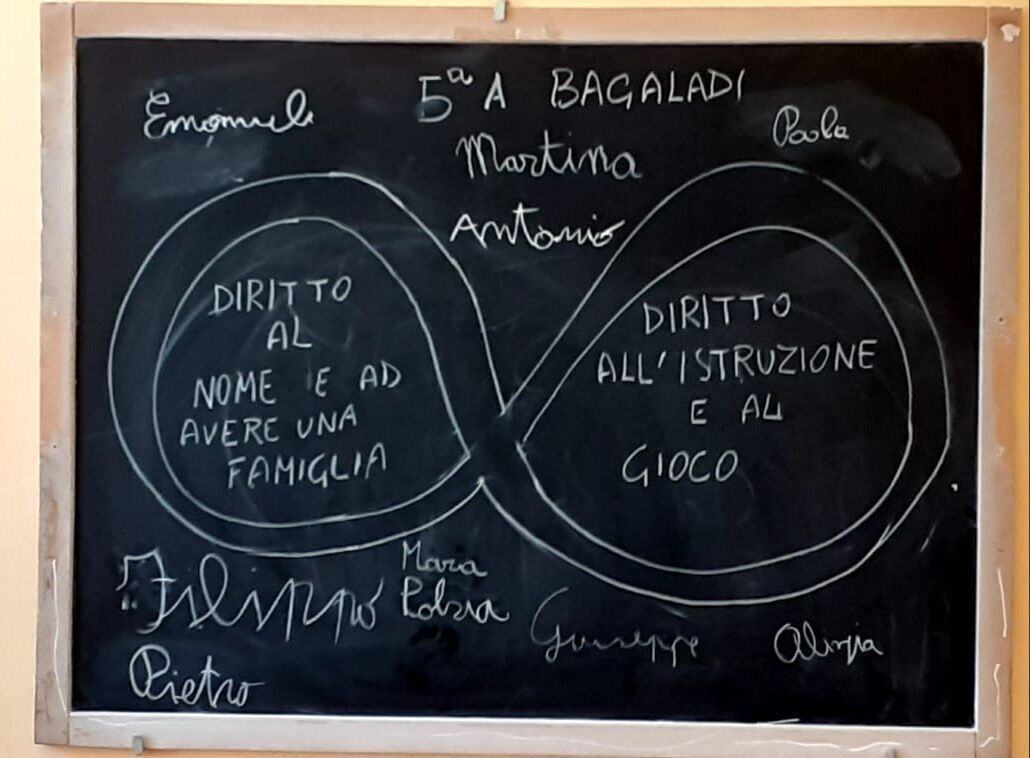 5ª A BAGALADI
Emanuele
Paola
Martina
Antonio
DIRITTO
AL
NOME E AD
AVERE UNA
FAMIGLIA
DIRITTO
ALL'ISTRUZIONE
E AL
GIOCO
Filippo
Maria
Polsia
Giuseppe
Olimpia
Pietro